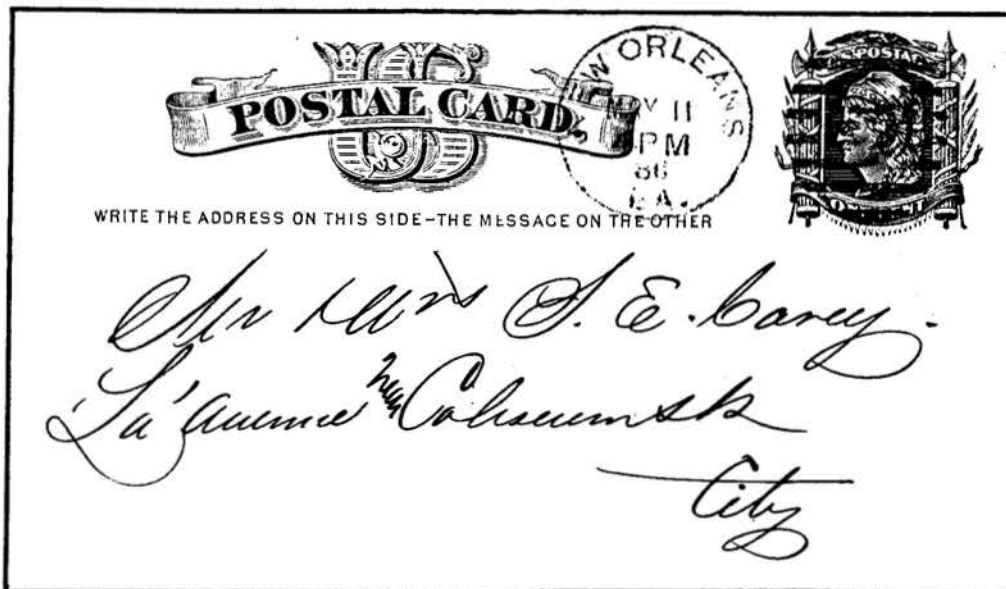 US
POSTAL CARD.
NEW ORLEANS
MAY 11
PM
86
LA.
U.S. POSTAL
WRITE THE ADDRESS ON THIS SIDE–THE MESSAGE ON THE OTHER
Mr & Mrs S. E. Carey.
'La' Avenue near Coliseum St
City